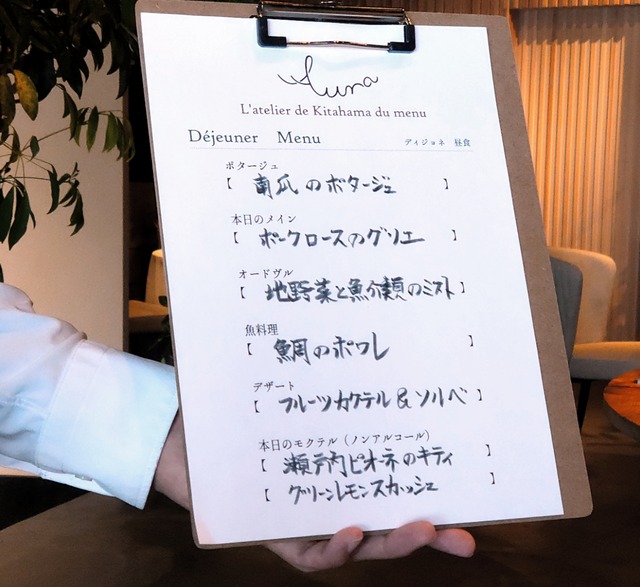 Luna
L'atelier de Kitahama du menu
Déjeuner Menu ディジョネ 昼食
ポタージュ
【 南瓜のポタージュ 】
本日のメイン
【 ポークロースのグリエ 】
オードヴル
【 地野菜と魚介類のミスト 】
魚料理
【 鯛のポワレ 】
デザート
【 フルーツカクテル & ソルベ 】
本日のモクテル（ノンアルコール）
【 瀬戸内ピオーネのキティ 】
【 グリーンレモンスカッシュ 】